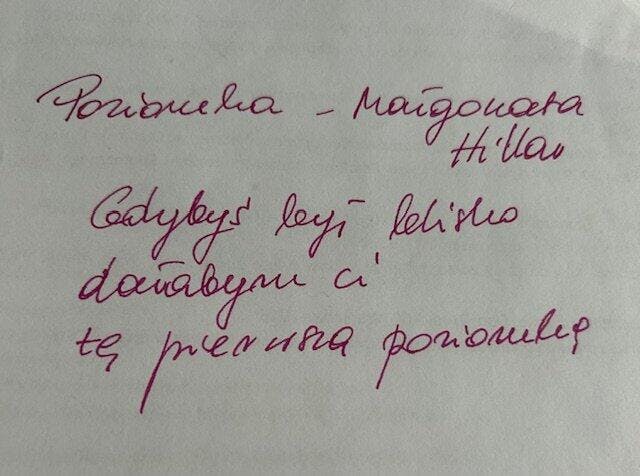 Poziomka - Małgorzata
Hillar
Gdybyś był blisko
dałabym ci
tę pierwszą poziomkę